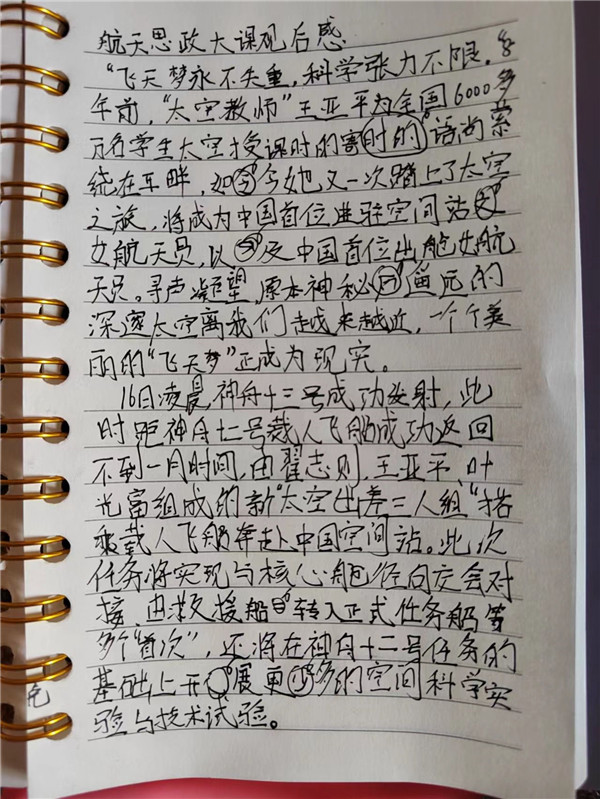 航天思政大课观后感
“飞天梦永不失重,科学张力不限。”8
年前,“太空教师”王亚平为全国6000多
万名学生太空授课时的寄时的话尚萦
绕在耳畔,如今她又一次踏上了太空
之旅,将成为中国首位进驻空间站
女航天员,以及中国首位出舱女航
天员。寻声凝望,原本神秘遥远的
深邃太空离我们越来越近,一个个美
丽的“飞天梦”正成为现实。
16日凌晨神舟十三号成功发射,此
时距神舟十二号载人飞船成功返回
不到一月时间,由翟志刚,王亚平、叶
光富组成的新“太空出差三人组”搭
乘载人飞船奔赴中国空间站。此次
任务将实现与核心舱径向交会对
接、由救援船转入正式任务船等
多个“首次”,还将在神舟十二号任务的
基础上开展更多的空间科学实
验与技术试验。